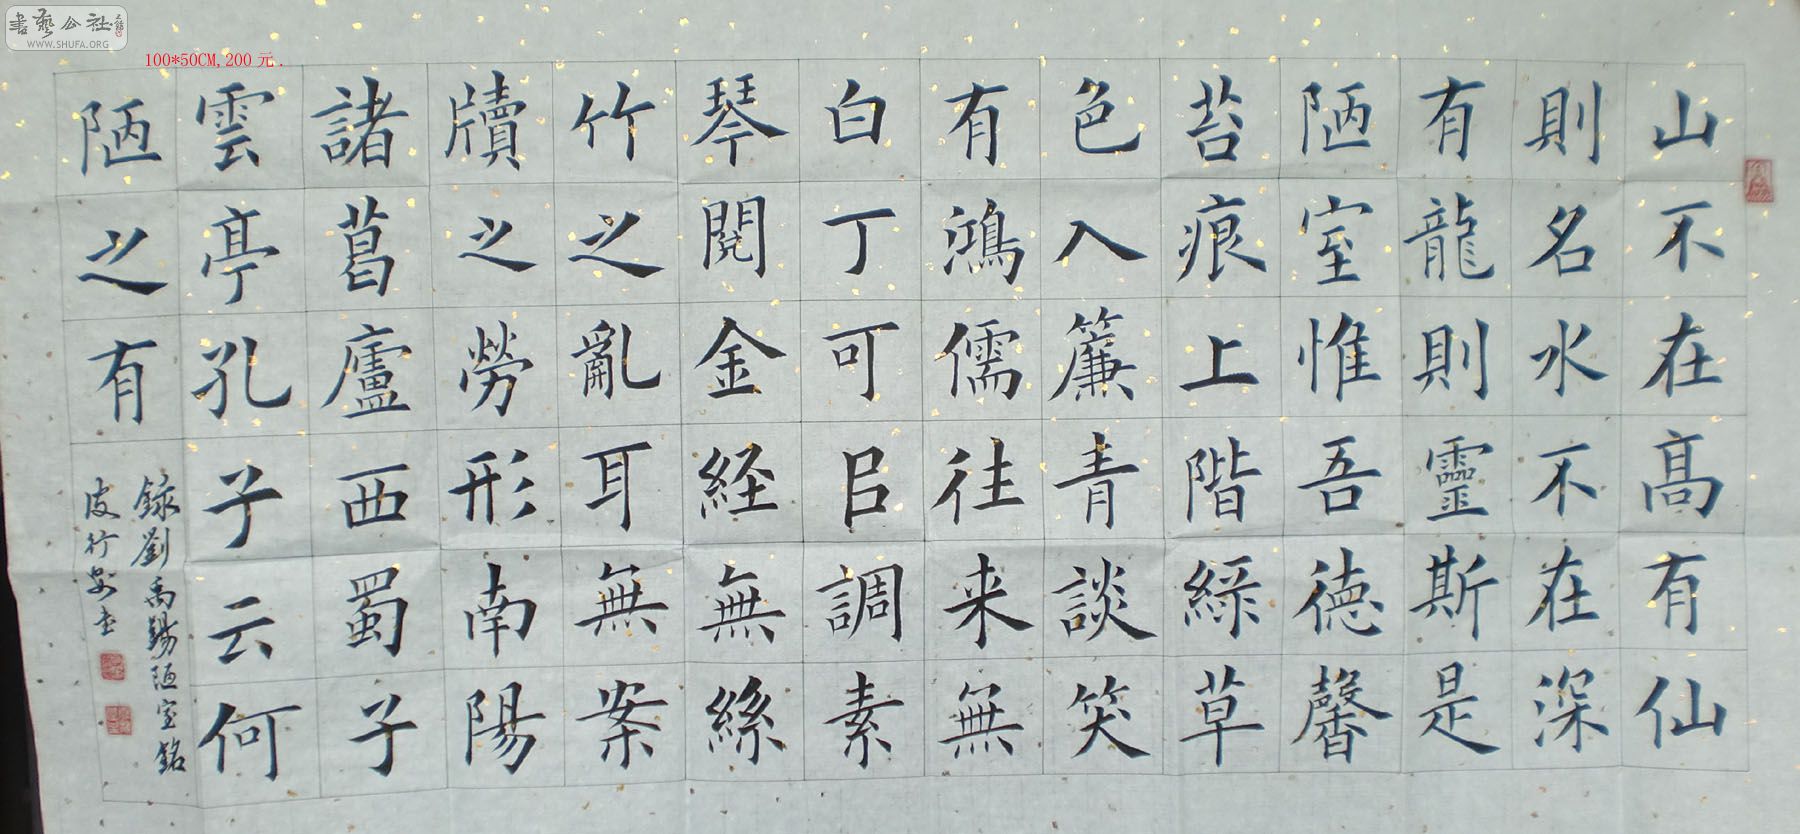 書藝公社
WWW.SHUFA.ORG
100*50CM,200元.
山不在高有仙
則名水不在深
有龍則靈斯是
陋室惟吾德馨
苔痕上階綠草
色入簾青談笑
有鴻儒往来無
白丁可㠯調素
琴閱金経無絲
竹之亂耳無案
牘之勞形南陽
諸葛廬西蜀子
雲亭孔子云何
陋之有
録劉禹錫陋室銘
皮行